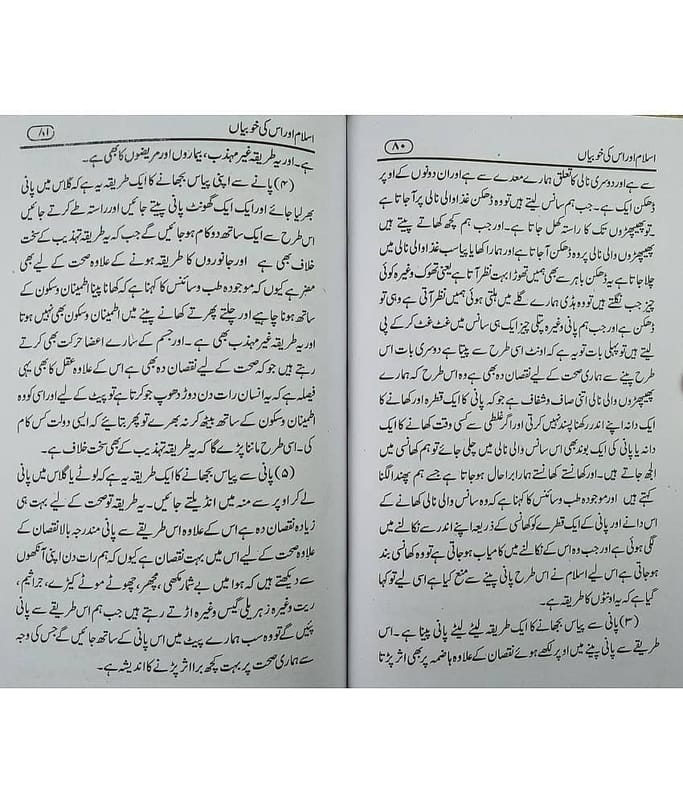 اسلام اور اس کی خوبیاں
۸۰
سے ہے اور دوسری نالی کا تعلق ہمارے معدے سے ہے اور ان دونوں کے اوپر
ڈھکن ایک ہے۔ جب ہم سانس لیتے ہیں تو وہ ڈھکن غذا والی نالی پر آ جاتا ہے
تو پھیپھڑوں تک کا راستہ کھل جاتا ہے۔ اور جب ہم کچھ کھاتے پیتے ہیں
پھیپھڑوں والی نالی پر وہ ڈھکن آ جاتا ہے اور ہمارا کھایا پیا سب غذا والی نالی میں
چلا جاتا ہے یہ ڈھکن باہر سے بھی ہمیں تھوڑا بہت نظر آتا ہے یعنی تھوک وغیرہ کوئی
چیز جب نگلتے ہیں تو وہ ہڈی ہمارے گلے میں ہلتی ہوئی ہمیں نظر آتی ہے وہی تو
ڈھکن ہے اور جب ہم پانی وغیرہ پتلی چیز ایک ہی سانس میں غٹ غٹ کر کے پی
لیتے ہیں تو پہلی بات تو یہ ہے کہ اونٹ اسی طرح سے پیتا ہے دوسری بات اس
طرح پینے سے ہماری صحت کے لیے نقصان دہ بھی ہے وہ اس طرح کہ ہمارے
پھیپھڑوں والی نالی اتنی صاف وشفاف ہے جو کہ پانی کا ایک قطرہ اور کھانے کا
ایک دانہ اپنے اندر رکھنا پسند نہیں کرتی اور اگر غلطی سے کسی وقت کھانے کا ایک
دانہ یا پانی کی ایک بوند بھی اس سانس والی نالی میں چلی جائے تو ہم کھانسی میں
الجھ جاتے ہیں۔ اور کھانستے کھانستے ہمارا برا حال ہو جاتا ہے جسے ہم پھندا لگنا
کہتے ہیں اور موجودہ طب وسائنس کا کہنا ہے کہ وہ سانس والی نالی کھانے کے
اس دانے اور پانی کے ایک قطرے کو کھانسی کے ذریعہ اپنے اندر سے نکالنے میں
لگی ہوئی ہے اور جب وہ اس کے نکالنے میں کامیاب ہو جاتی ہے تو وہ کھانسی بند
ہو جاتی ہے اس لیے اسلام نے اس طرح پانی پینے سے منع کیا ہے اسی لیے تو کہا
گیا ہے کہ یہ اونٹوں کا طریقہ ہے۔
(۳) پانی سے پیاس بجھانے کا ایک طریقہ لیٹے لیٹے پانی پینا ہے۔ اس
طریقے سے پانی پینے میں اوپر لکھے ہوئے نقصان کے علاوہ ہاضمہ پر بھی اثر پڑتا
اسلام اور اس کی خوبیاں
۸۱
ہے۔ اور یہ طریقہ غیر مہذب، بیماروں اور مریضوں کا بھی ہے۔
(۴) پانے سے اپنی پیاس بجھانے کا ایک طریقہ یہ ہے کہ گلاس میں پانی
بھر لیا جائے اور ایک ایک گھونٹ پانی پیتے جائیں اور راستہ طے کرتے جائیں
اس طرح سے ایک ساتھ دو کام ہو جائیں گے جب کہ یہ طریقہ تہذیب کے سخت
خلاف بھی ہے اور جانوروں کا طریقہ ہونے کے علاوہ صحت کے لیے بھی
مضر ہے کیوں کہ موجودہ طب وسائنس کا کہنا ہے کہ کھانا پینا اطمینان وسکون کے
ساتھ ہونا چاہیے اور چلتے پھرتے کھانے پینے میں اطمینان وسکون بھی نہیں ہوتا
اور یہ طریقہ غیر مہذب بھی ہے۔ اور جسم کے سارے اعضا حرکت بھی کرتے
رہتے ہیں جو کہ صحت کے لیے نقصان دہ بھی ہے اس کے علاوہ عقل کا بھی یہی
فیصلہ ہے کہ یہ انسان رات دن دوڑ دھوپ جو کرتا ہے تو پیٹ کے لیے اور اسی کو وہ
اطمینان وسکون کے ساتھ بیٹھ کر نہ بھرے تو پھر بتائیے کہ ایسی دولت کس کام
کی۔ اسی طرح ماننا پڑے گا کہ یہ طریقہ تہذیب کے بھی سخت خلاف ہے۔
(۵) پانی سے پیاس بجھانے کا ایک طریقہ یہ ہے کہ لوٹے یا گلاس میں پانی
لے کر اوپر سے منہ میں انڈیلتے جائیں۔ یہ طریقہ تو صحت کے لیے بہت ہی
زیادہ نقصان دہ ہے اس کے علاوہ اس طریقے سے پانی مندرجہ بالا نقصان کے
علاوہ صحت کے لیے اس میں بہت نقصان ہے کیوں کہ ہم رات دن اپنی آنکھوں
سے دیکھتے ہیں کہ ہوا میں بے شمار مکھی، مچھر، چھوٹے موٹے کیڑے، جراثیم،
ریت وغیرہ زہریلی گیس وغیرہ اڑتے رہتے ہیں جب ہم اس طریقے سے پانی
پئیں گے تو وہ سب ہمارے پیٹ میں اس پانی کے ساتھ جائیں گے جس کی وجہ
سے ہماری صحت پر بہت کچھ برا اثر پڑنے کا اندیشہ ہے۔